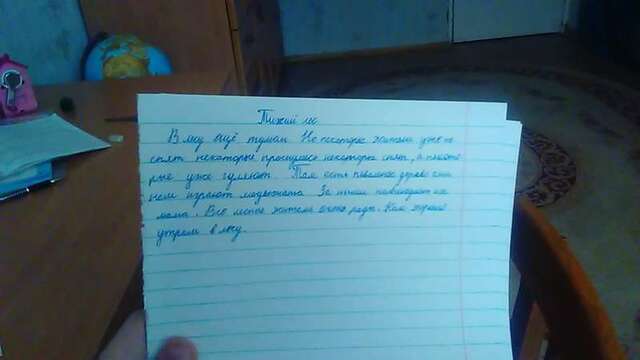 Тихий лес
В лесу ещё туман Но некоторые жители уже не
спят некоторые проснулись некоторые спят, а некото
рые уже гуляют. Там есть поваленое дерево
нём играют медвежата За ними наблюдает их
мама. Все лесные жители очень рады. Как хорошо
утром в лесу.